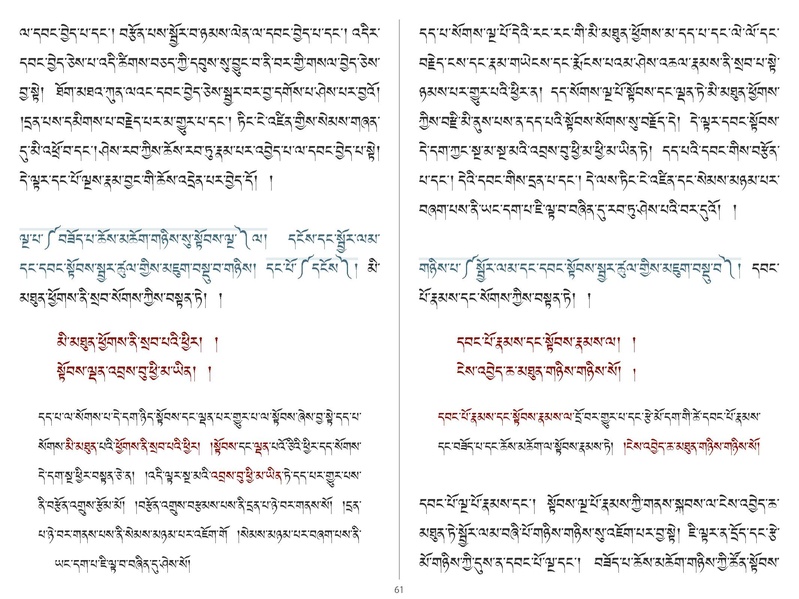 ལ་དབང་བྱེད་པ་དང་། བརྩོན་པས་སྦྱོར་བ་ཉམས་ལེན་ལ་དབང་བྱེད་པ་དང་། འདིར་
དབང་བྱེད་ཅེས་པ་འདི་ཚིགས་བཅད་ཀྱི་དབུས་སུ་བྱུང་བ་ནི་བར་གྱི་གསལ་བྱེད་ཅེས་
བྱ་སྟེ། ཐོག་མཐའ་ཀུན་ལའང་དབང་བྱེད་ཅེས་སྦྱར་བར་བྱ་དགོས་པ་ཤེས་པར་བྱའོ།
།དྲན་པས་དམིགས་པ་བརྗེད་པར་མ་གྱུར་པ་དང་། ཏིང་ངེ་འཛིན་གྱིས་སེམས་གཞན་
དུ་མི་འཕྲོ་བ་དང་།ཤེས་རབ་ཀྱིས་ཆོས་རབ་ཏུ་རྣམ་པར་འབྱེད་པ་ལ་དབང་བྱེད་པ་སྟེ།
དེ་ལྟར་དང་པོ་ལྔས་རྣམ་བྱང་གི་ཆོས་འདྲེན་པར་བྱེད་དོ། །
ལྔ་པ་༼བཟོད་པ་ཆོས་མཆོག་གཉིས་སུ་སྟོབས་ལྔ་༽ལ། དངོས་དང་སྦྱོར་ལམ་
དང་དབང་སྟོབས་སྦྱར་ཚུལ་གྱིས་མཇུག་བསྡུ་བ་གཉིས། དང་པོ་༼དངོས་༽། མི་
མཐུན་ཕྱོགས་ནི་སྲབ་སོགས་ཀྱིས་བསྟན་ཏེ། །
མི་མཐུན་ཕྱོགས་ནི་སྲབ་པའི་ཕྱིར། །
སྟོབས་ལྡན་འབྲས་བུ་ཕྱི་མ་ཡིན། །
དད་པ་ལ་སོགས་པ་དེ་དག་ཉིད་སྟོབས་དང་ལྡན་པར་གྱུར་པ་ལ་སྟོབས་ཞེས་བྱ་སྟེ་དད་པ་
སོགས་མི་མཐུན་པའི་ཕྱོགས་ནི་སྲབ་པའི་ཕྱིར། །སྟོབས་དང་ལྡན་པའོ་ཅིའི་ཕྱིར་དད་སོགས་
དེ་དག་སྔ་ཕྱིར་བསྟན་ཅེ་ན། །འདི་ལྟར་སྔ་མའི་འབྲས་བུ་ཕྱི་མ་ཡིན་ཏེ་དད་པར་གྱུར་པས་
ནི་བརྩོན་འགྲུས་རྩོམ་མོ། །བརྩོན་འགྲུས་བརྩམས་པས་ནི་དྲན་པ་ཉེ་བར་གནས་སོ། །དྲན་
པ་ཉེ་བར་གནས་པས་ནི་སེམས་མཉམ་པར་འཇོག་གོ །སེམས་མཉམ་པར་བཞག་པས་ནི་
ཡང་དག་པ་ཇི་ལྟ་བ་བཞིན་དུ་ཤེས་སོ།
དད་པ་སོགས་ལྔ་པོ་དེའི་རང་རང་གི་མི་མཐུན་ཕྱོགས་མ་དད་པ་དང་ལེ་ལོ་དང་
བརྗེད་ངས་དང་རྣམ་གཡེངས་དང་རྨོངས་པའམ་ཤེས་འཆལ་རྣམས་ནི་སྲབ་པ་སྟེ་
ཉམས་པར་གྱུར་པའི་ཕྱིར་ན། དད་སོགས་ལྔ་པོ་སྟོབས་དང་ལྡན་ཏེ་མི་མཐུན་ཕྱོགས་
ཀྱིས་བརྫི་མི་ནུས་པས་ན་དད་པའི་སྟོབས་སོགས་སུ་བརྗོད་དེ། དེ་ལྟར་དབང་སྟོབས་
དེ་དག་ཀྱང་སྔ་མ་སྔ་མའི་འབྲས་བུ་ཕྱི་མ་ཕྱི་མ་ཡིན་ཏེ། དད་པའི་དབང་གིས་བརྩོན་
པ་དང་། དེའི་དབང་གིས་དྲན་པ་དང་། དེ་ལས་ཏིང་ངེ་འཛིན་དང་སེམས་མཉམ་པར་
བཞག་པས་ནི་ཡང་དག་པ་ཇི་ལྟ་བ་བཞིན་དུ་རབ་ཏུ་ཤེས་པའི་བར་དུའོ། །
གཉིས་པ་༼སྦྱོར་ལམ་དང་དབང་སྟོབས་སྦྱར་ཚུལ་གྱིས་མཇུག་བསྡུ་བ༽། དབང་
པོ་རྣམས་དང་སོགས་ཀྱིས་བསྟན་ཏེ། །
དབང་པོ་རྣམས་དང་སྟོབས་རྣམས་ལ། །
ངེས་འབྱེད་ཆ་མཐུན་གཉིས་གཉིས་སོ། །
དབང་པོ་རྣམས་དང་སྟོབས་རྣམས་ལ་དྲོ་བར་གྱུར་པ་དང་རྩེ་མོ་དག་གི་ཚེ་དབང་པོ་རྣམས་
དང་བཟོད་པ་དང་ཆོས་མཆོག་ལ་སྟོབས་རྣམས་ཏེ། །ངེས་འབྱེད་ཆ་མཐུན་གཉིས་གཉིས་སོ།
དབང་པོ་ལྔ་པོ་རྣམས་དང་། སྟོབས་ལྔ་པོ་རྣམས་ཀྱི་གནས་སྐབས་ལ་ངེས་འབྱེད་ཆ་
མཐུན་ཏེ་སྦྱོར་ལམ་བཞི་པོ་གཉིས་གཉིས་སུ་འཇོག་པར་བྱ་སྟེ། ཇི་ལྟར་ན་དྲོད་དང་རྩེ་
མོ་གཉིས་ཀྱི་དུས་ན་དབང་པོ་ལྔ་དང་། བཟོད་པ་ཆོས་མཆོག་གཉིས་ཀྱི་ཚོན་སྟོབས་
61